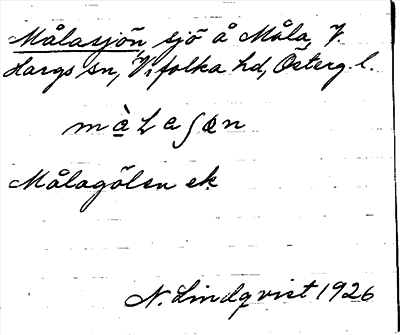 Målasjön, sjö å Måla, V.
Hargs sn, Vifolka hd, Österg. l.
Målagölen ek
N. Lindqvist 1926